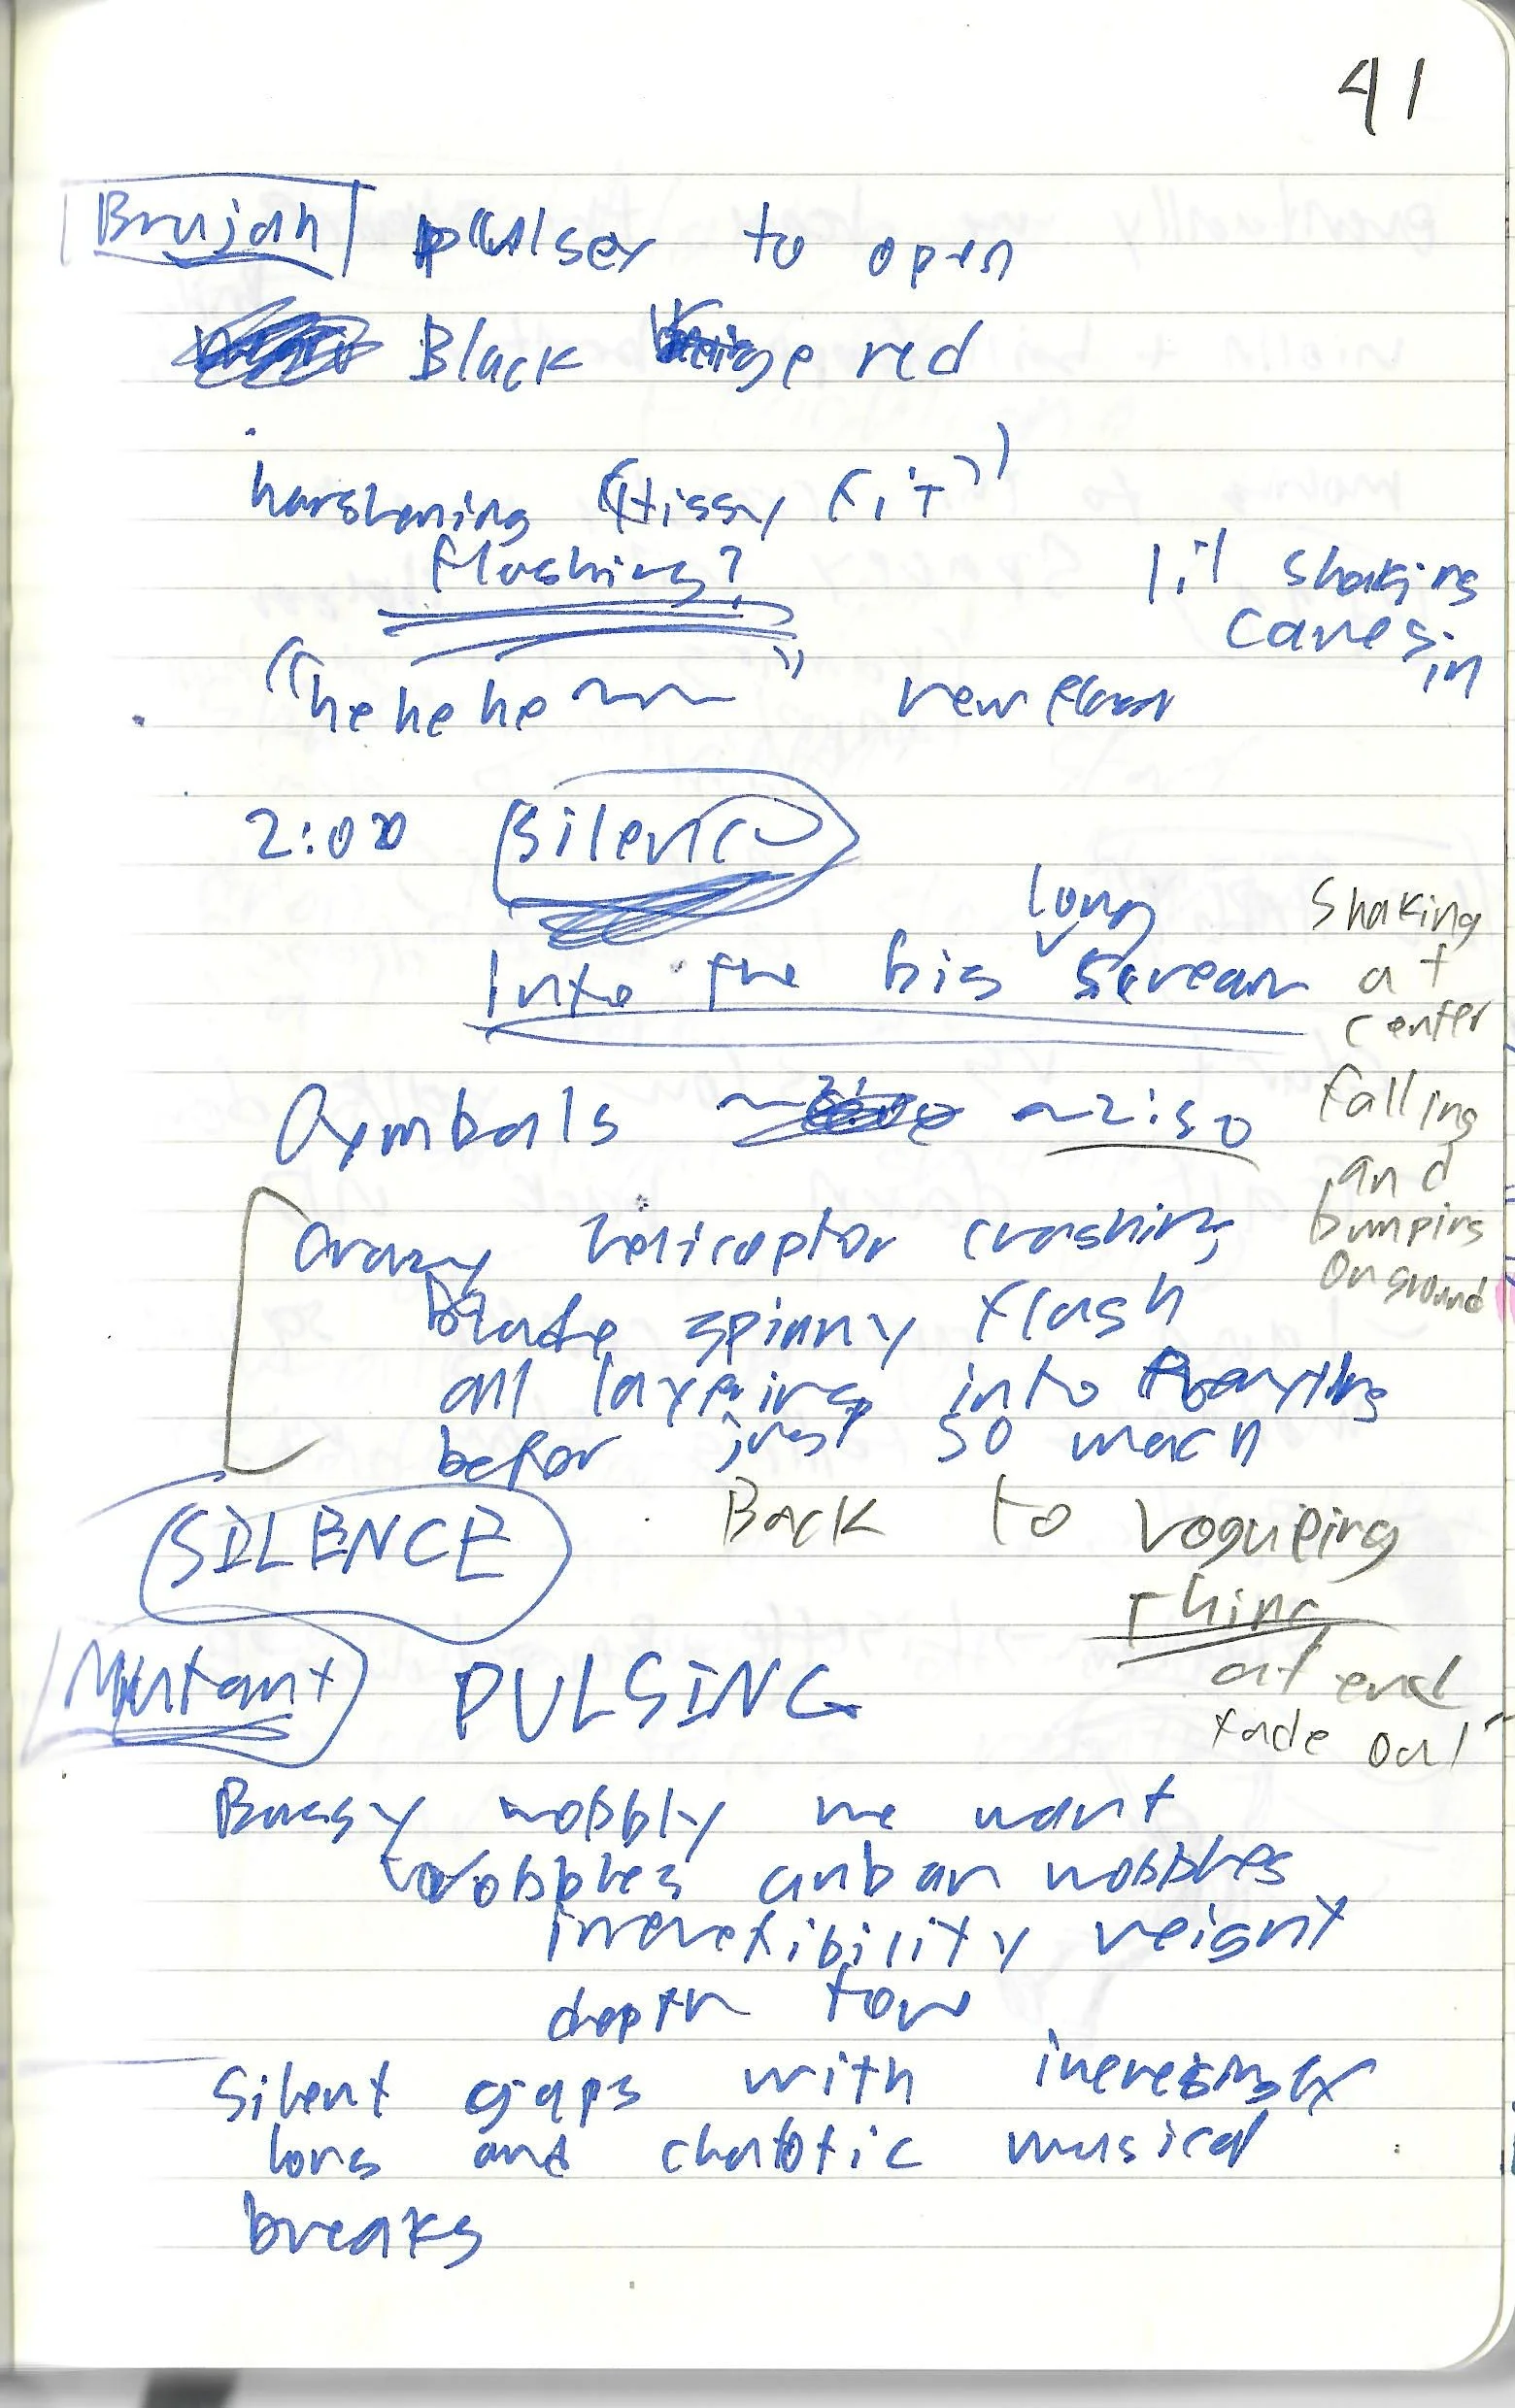 41
Brujah pulser to open
Black beige red
harshening "Hissy fit"
flashing?
lil shaking
caves in
"he he he" new floor
2:00 Silence
Into the big long scream
Shaking
at
center
falling
and
bumping
on ground
Cymbals ~2:50
Crazy helicoptor crashing
Blade spinny flash
all layering into
befor just so much
SILENCE
Back to vogueing
thing
at end
fade out
Mutant PULSING
Bassy wobbly we want
wobbles urban wobbles
weight
depth
Silent gaps with
long and chaotic musical
breaks